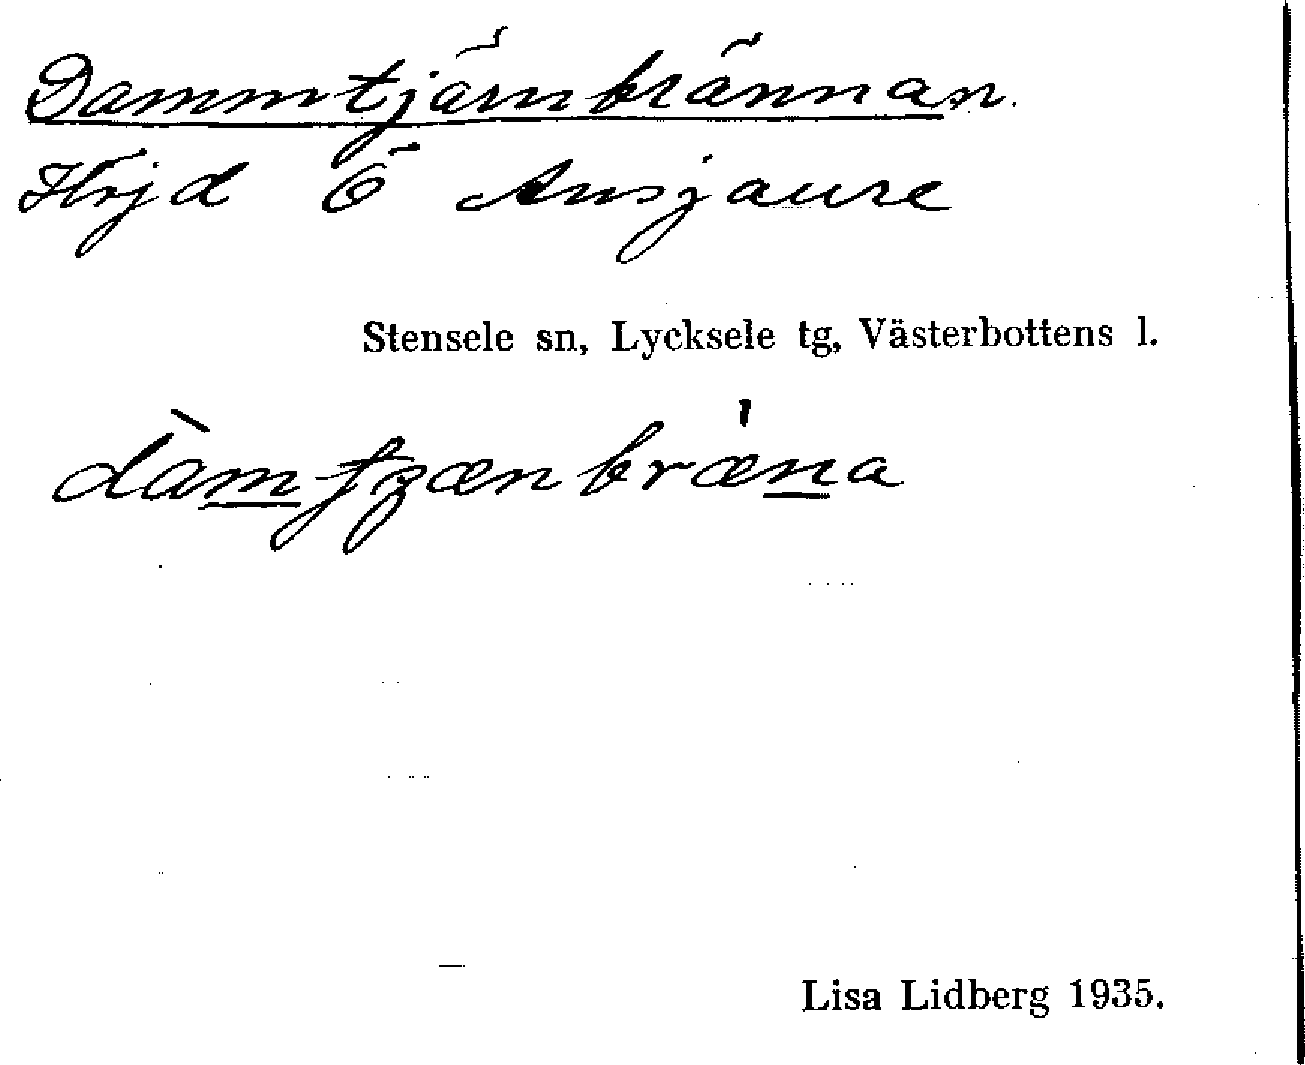 Dammtjärnbrännan.
Höjd Ö Ansjaure
Stensele sn, Lycksele tg, Västerbottens l.
Lisa Lidberg 1935.